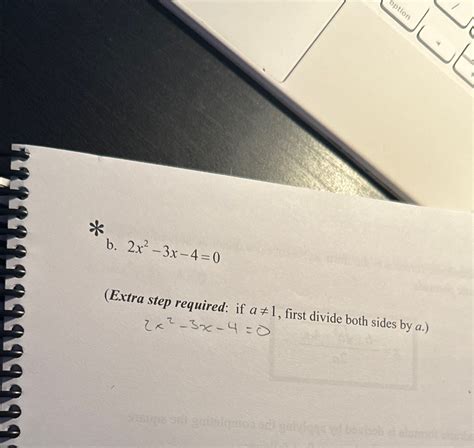 option
*
b. 2x² − 3x − 4 = 0
(Extra step required: if a ≠ 1, first divide both sides by a.)
2x² − 3x − 4 = 0